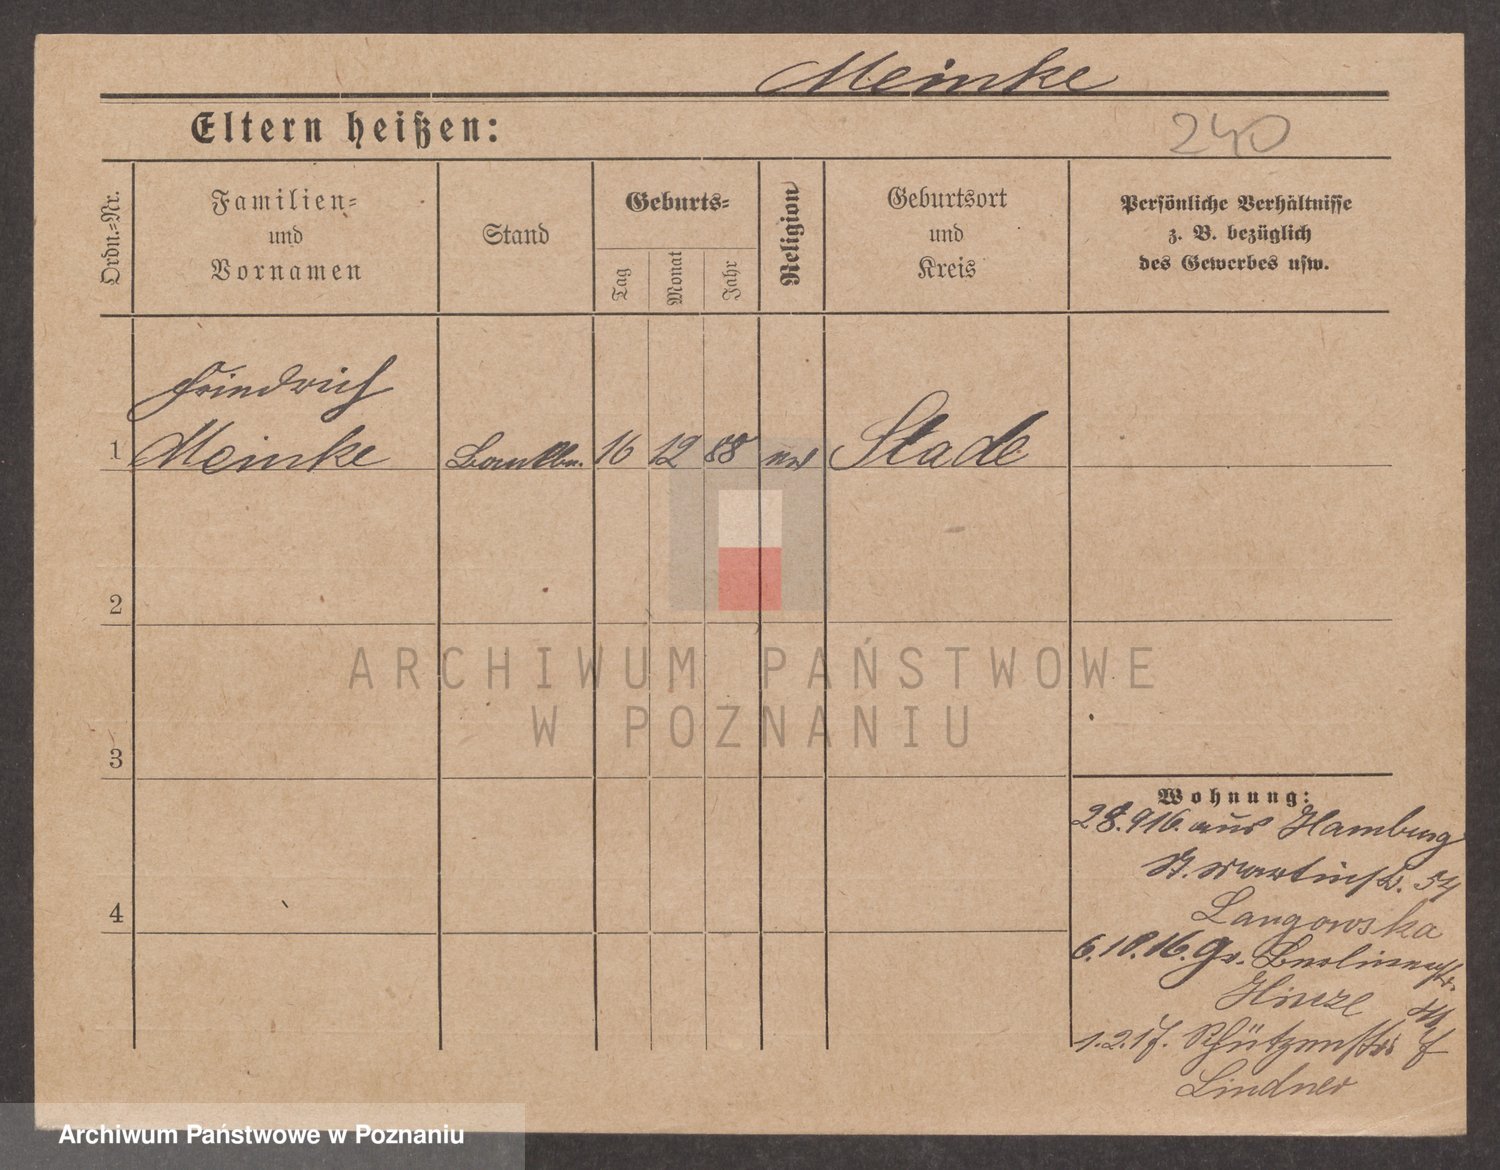 Meinke
Eltern heißen:
240
Ordn.-Nr.
Familien-
und
Vornamen
Stand
Geburts-
Tag
Monat
Jahr
Religion
Geburtsort
und
Kreis
Persönliche Verhältnisse
z. B. bezüglich
des Gewerbes usw.
Friedrich
1 Meinke Bankbn. 16 12 88 ev Stade
2
ARCHIWUM PAŃSTWOWE
W POZNANIU
3
Wohnung:
28.9.16. aus Hamburg
St. Martinstr. 54
4
Langowska
6.10.16. Gr. Berlinerstr.
Hinze
1.2.17. Schützenstr.
Lindner
Archiwum Państwowe w Poznaniu